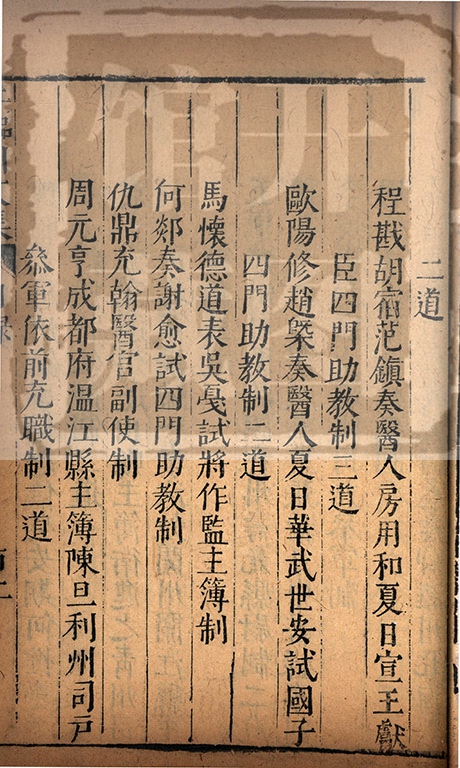 二道
程戡胡宿范鎮奏醫人房用和夏日宣王獻
臣四門助教制三道
歐陽修趙槩奏醫人夏日華武世安試國子
四門助教制二道
馬懷德道表吳戛試將作監主簿制
何郯奏謝愈試四門助教制
仇鼎充翰醫官副使制
周元亨成都府溫江縣主簿陳旦利州司戸
叅軍依前充職制二道